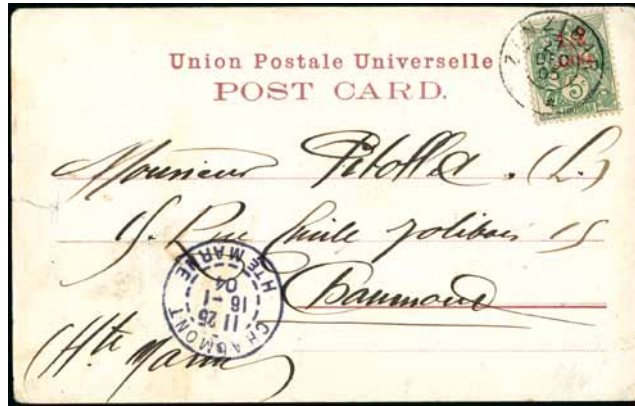 Union Postale Universelle
POST CARD.
ZANZIBAR
DE
03
5
Monsieur Pitollet . (L.)
15. Rue Emile Jolibois 15
Chaumont
(Hte Marne)
CHAUMONT
11 25
16 - 1
04
HTE MARNE